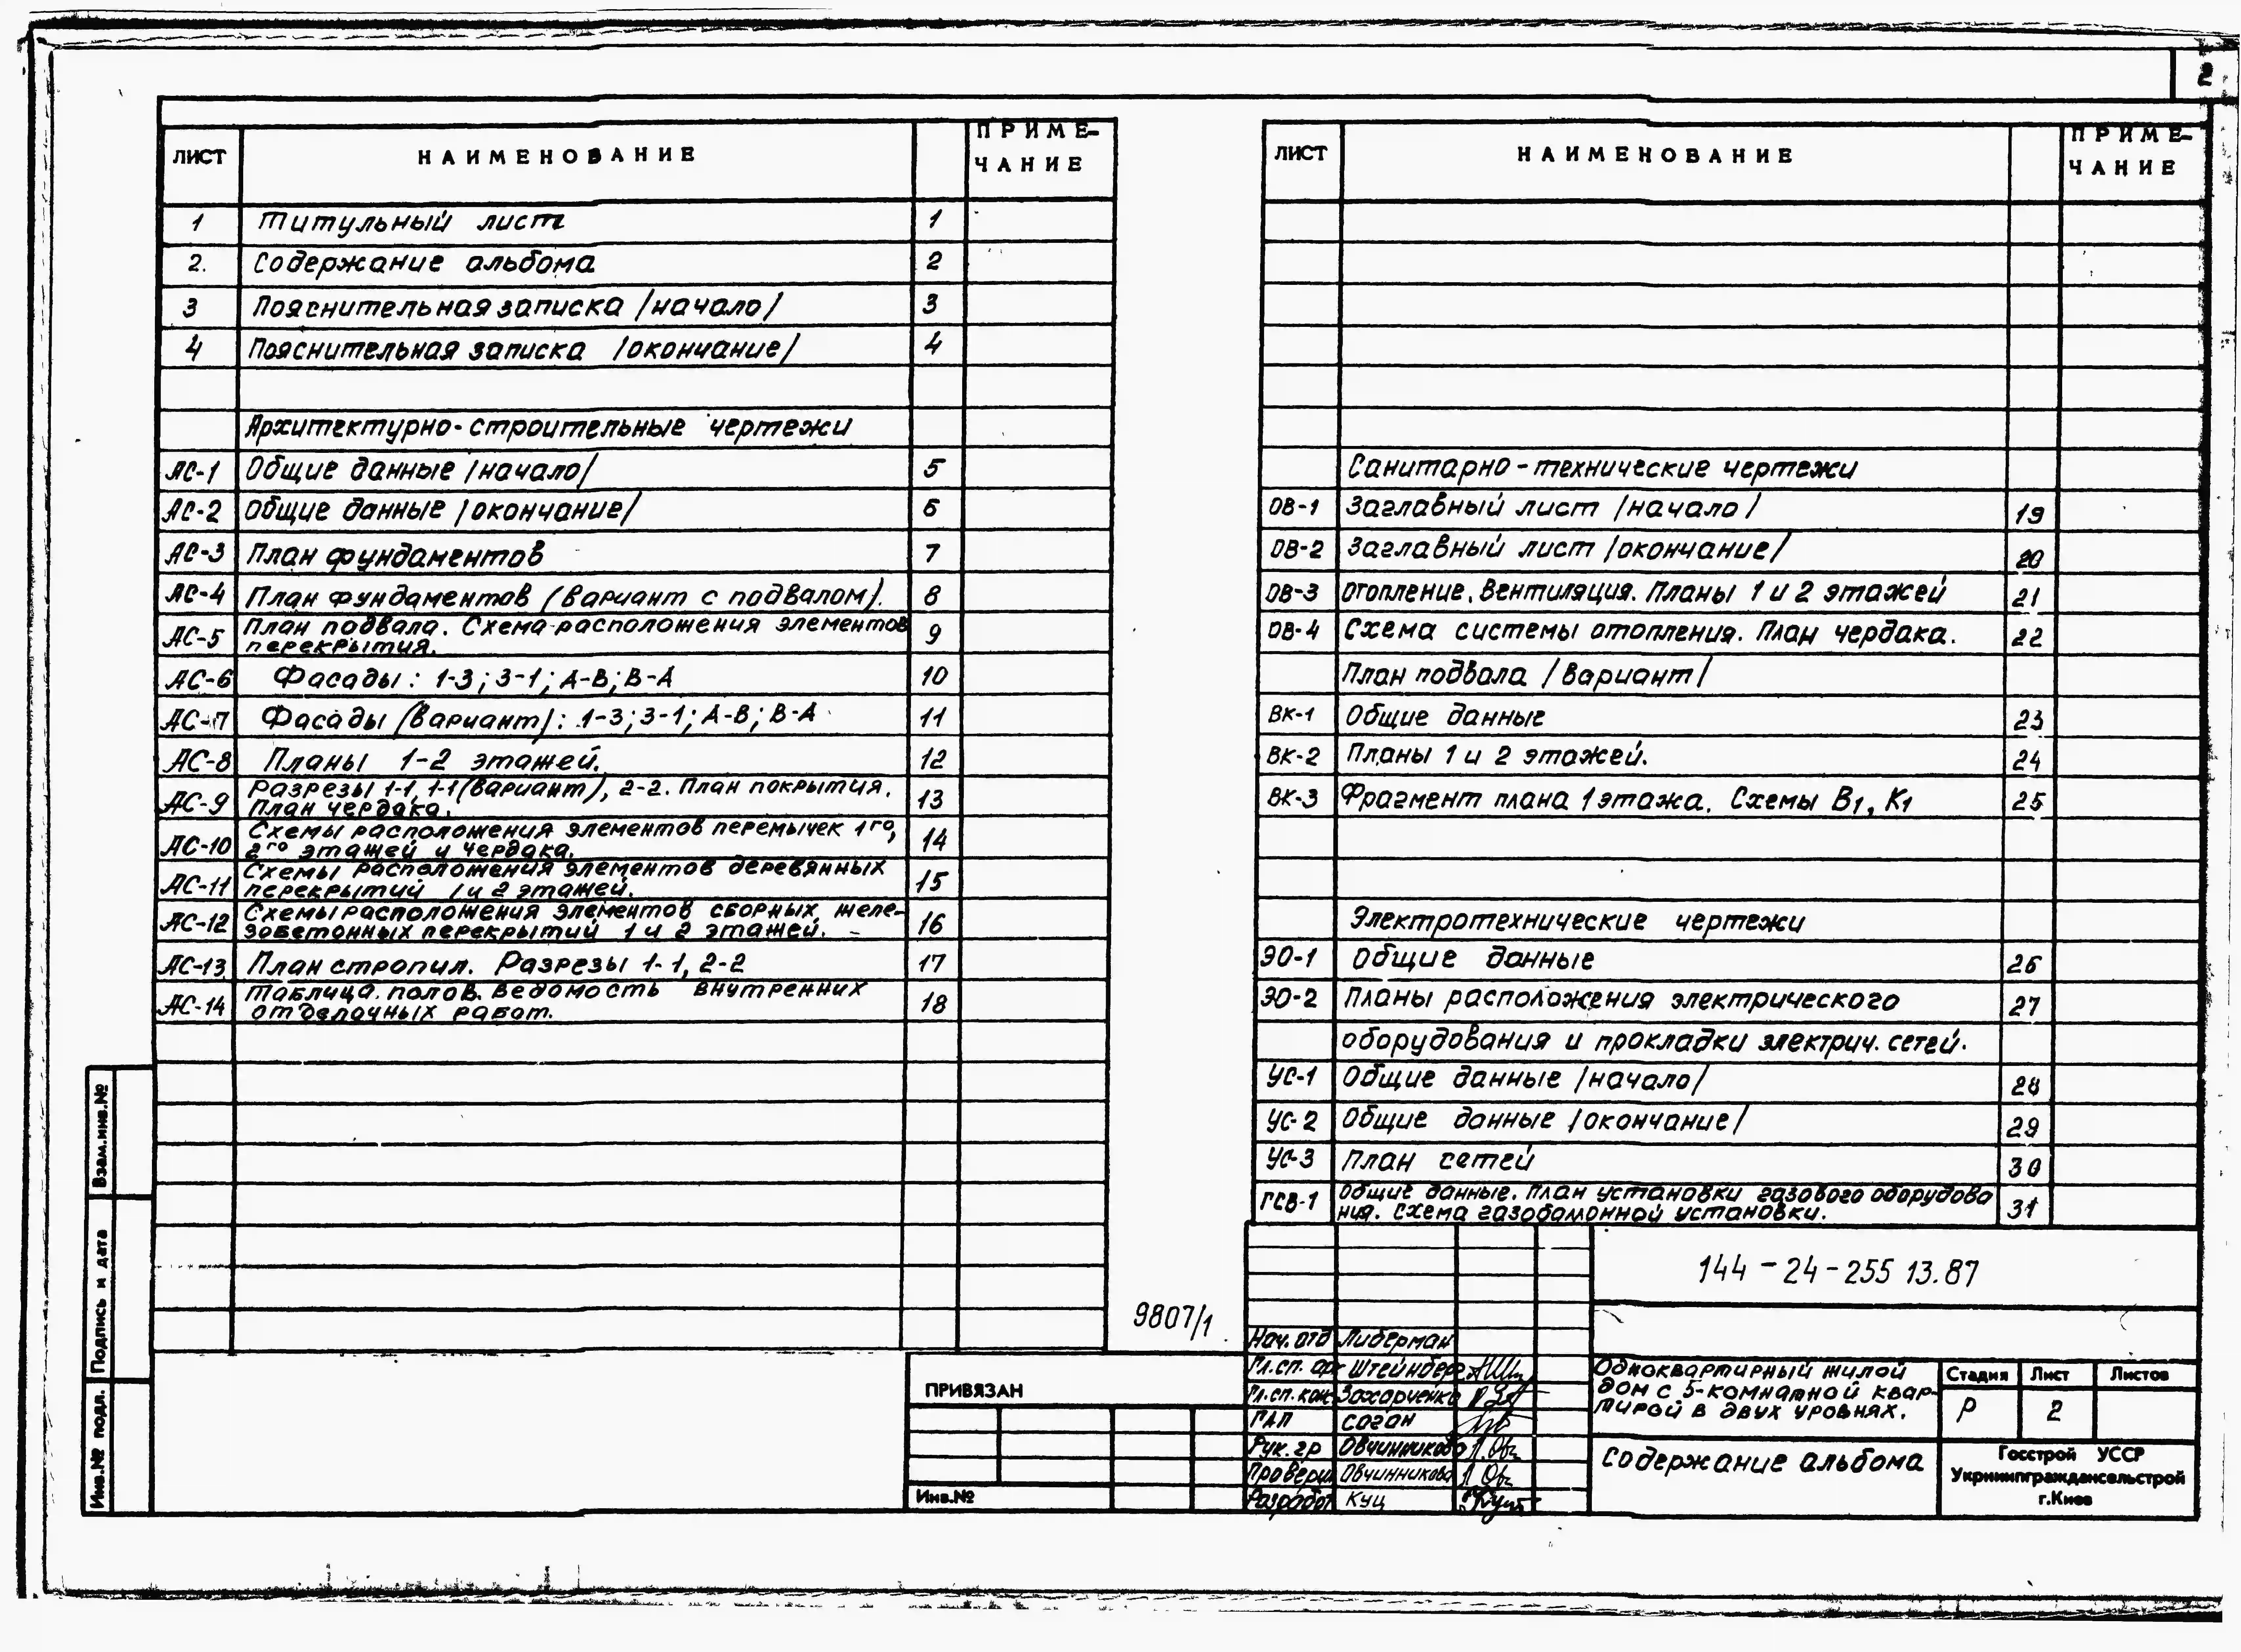 2
ЛИСТ НАИМЕНОВАНИЕ ПРИМЕ-
ЧАНИЕ
1 Титульный лист 1
2. Содержание альбома 2
3 Пояснительная записка /начало/ 3
4 Пояснительная записка /окончание/ 4
Архитектурно-строительные чертежи
АС-1 Общие данные /начало/ 5
АС-2 Общие данные /окончание/ 6
АС-3 План фундаментов 7
АС-4 План фундаментов (вариант с подвалом). 8
АС-5 План подвала. Схема расположения элементов 9
перекрытия.
АС-6 Фасады: 1-3; 3-1; А-В; В-А 10
АС-7 Фасады (вариант): 1-3; 3-1; А-В; В-А 11
АС-8 Планы 1-2 этажей. 12
АС-9 Разрезы 1-1, 1-1 (вариант), 2-2. План покрытия. 13
План чердака.
АС-10 Схемы расположения элементов перемычек 1го, 14
2го этажей и чердака.
АС-11 Схемы расположения элементов деревянных 15
перекрытий 1 и 2 этажей.
АС-12 Схемы расположения элементов сборных желе- 16
зобетонных перекрытий 1 и 2 этажей.
АС-13 План стропил. Разрезы 1-1, 2-2 17
АС-14 Таблица полов. Ведомость внутренних 18
отделочных работ.
ЛИСТ НАИМЕНОВАНИЕ ПРИМЕ-
ЧАНИЕ
Санитарно-технические чертежи
ОВ-1 Заглавный лист /начало/ 19
ОВ-2 Заглавный лист /окончание/ 20
ОВ-3 Отопление. Вентиляция. Планы 1 и 2 этажей 21
ОВ-4 Схема системы отопления. План чердака. 22
План подвала /вариант/
ВК-1 Общие данные 23
ВК-2 Планы 1 и 2 этажей. 24
ВК-3 Фрагмент плана 1 этажа. Схемы В1, К1 25
Электротехнические чертежи
ЭО-1 Общие данные 26
ЭО-2 Планы расположения электрического 27
оборудования и прокладки электрич. сетей.
УС-1 Общие данные /начало/ 28
УС-2 Общие данные /окончание/ 29
УС-3 План сетей 30
ГСВ-1 Общие данные. План установки газового оборудова 31
ния. Схема газобаллонной установки.
Взам.инв.№
Подпись и дата
Инв.№ подл.
9807/1
ПРИВЯЗАН
Инв.№
144-24-255 13.87
Нач. отд Либерман
Гл.сп. ар Штейнберг
Гл.сп. кон Захарченко
ГАП Соган
Рук. гр Овчинникова
Проверил Овчинникова
Разработ Куц
Одноквартирный жилой
дом с 5-комнатной квар-
тирой в двух уровнях.
Стадия Лист Листов
Р 2
Содержание альбома
Госстрой УССР
Укрниипграждансельстрой
г.Киев